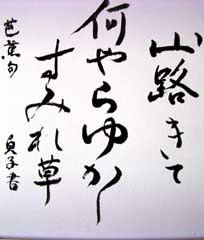 山路きて
何やらゆかし
すみれ草
芭蕉句
貞子書